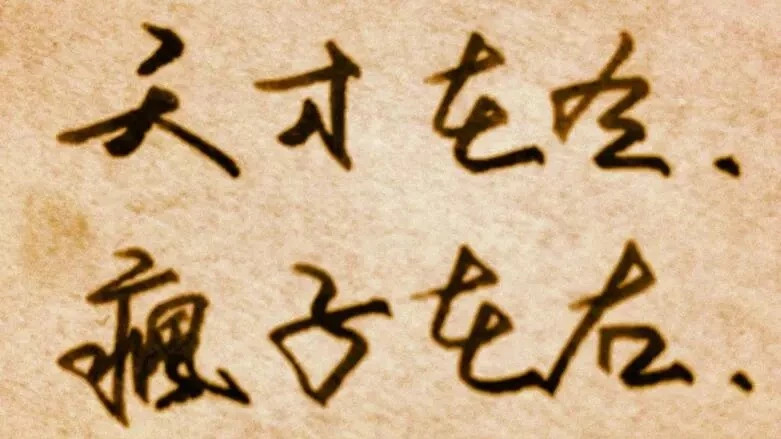 天才在左.
疯子在右.